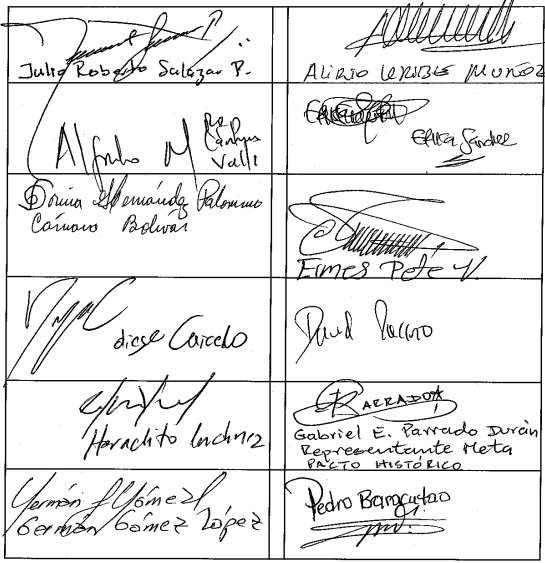 Julio Roberto Salazar P.
ALIRIO URIBE MUÑOZ
Alfredo M
Cámara
Valle
Erika Sánchez
Dorina Hernández Palomino
Cámara Bolívar
Ermes Pete V.
diego Caicedo
David Racero
Heraclito Landinez
PARRADO
Gabriel E. Parrado Durán
Representante Meta
PACTO HISTÓRICO
Germán Gómez L
Germán Gómez López
Pedro Baracutao